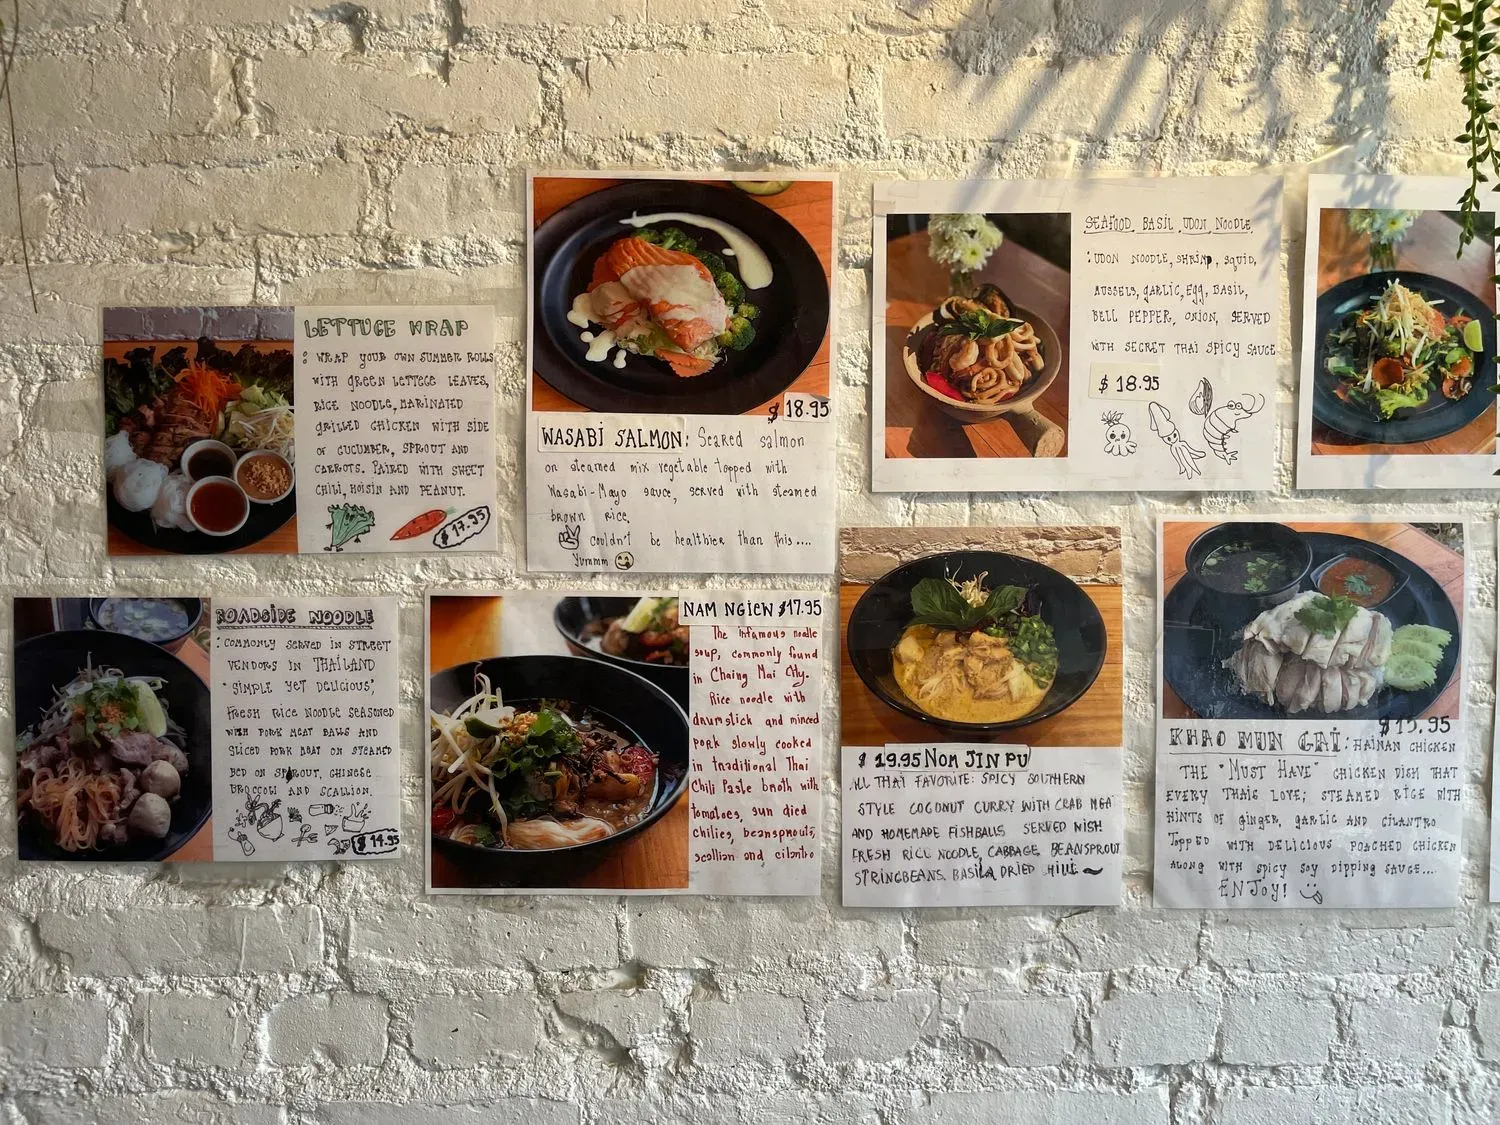 LETTUCE WRAP
: WRAP YOUR OWN SUMMER ROLLS
WITH GREEN LETTECE LEAVES,
RICE NOODLE, MARINATED
GRILLED CHICKEN WITH SIDE
OF CUCUMBER, SPROUT AND
CARROTS. PAIRED WITH SWEET
CHILI, HOISIN AND PEANUT.
$ 17.95
$ 18.95
WASABI SALMON: Seared salmon
on steamed mix vegetable topped with
Wasabi-Mayo sauce, served with steamed
brown rice.
couldn't be healthier than this....
Yummm
SEAFOOD BASIL UDON NOODLE
: UDON NOODLE, SHRIMP, SQUID,
MUSSELS, GARLIC, EGG, BASIL,
BELL PEPPER, ONION, SERVED
WITH SECRET THAI SPICY SAUCE
$ 18.95
ROADSIDE NOODLE
: COMMONLY SERVED IN STREET
VENDORS IN THAILAND
"SIMPLE YET DELICIOUS",
FRESH RICE NOODLE SEASONED
WITH PORK MEAT BALLS AND
SLICED PORK MEAT ON STEAMED
BED ON SPROUT, CHINESE
BROCCOLI AND SCALLION.
$ 14.95
NAM NGIEW $17.95
The infamous noodle
soup, commonly found
in Chaing Mai City.
Rice noodle with
drumstick and minced
pork slowly cooked
in traditional Thai
Chili Paste broth with
tomatoes, sun dried
chilies, beansprouts,
scallion and cilantro
$ 19.95 NOM JIN PU
ALL THAI FAVORITE: SPICY SOUTHERN
STYLE COCONUT CURRY WITH CRAB MEA
AND HOMEMADE FISHBALLS SERVED WISH
FRESH RICE NOODLE, CABBAGE, BEANSPROUT
STRINGBEANS, BASIL, DRIED CHILI
$15.95
KHAO MUN GAI: HAINAN CHICKEN
THE "MUST HAVE" CHICKEN DISH THAT
EVERY THAIS LOVE; STEAMED RICE WITH
HINTS OF GINGER, GARLIC AND CILANTRO
TOPPED WITH DELICIOUS POACHED CHICKEN
ALONG WITH SPICY SOY DIPPING SAUCE....
ENJOY!